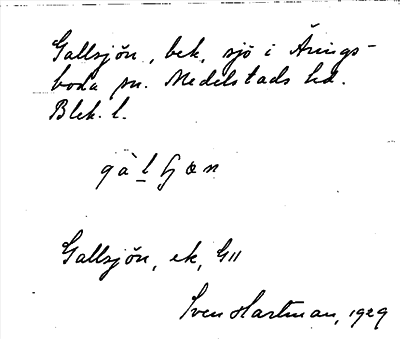 Gallsjön, bek, sjö i Årings-
boda sn. Medelstads hd.
Blek. l.
Gallsjön, ek, G11
Sven Hartman, 1929